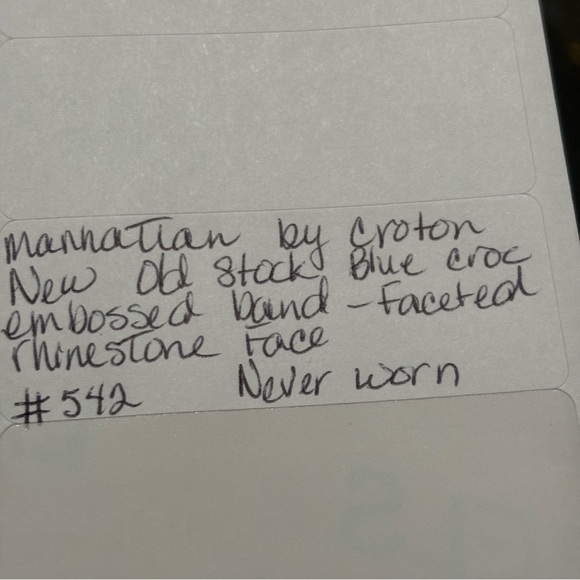 Manhattan by Croton
New Old Stock Blue croc
embossed band - Faceted
rhinestone Face
#542 Never worn